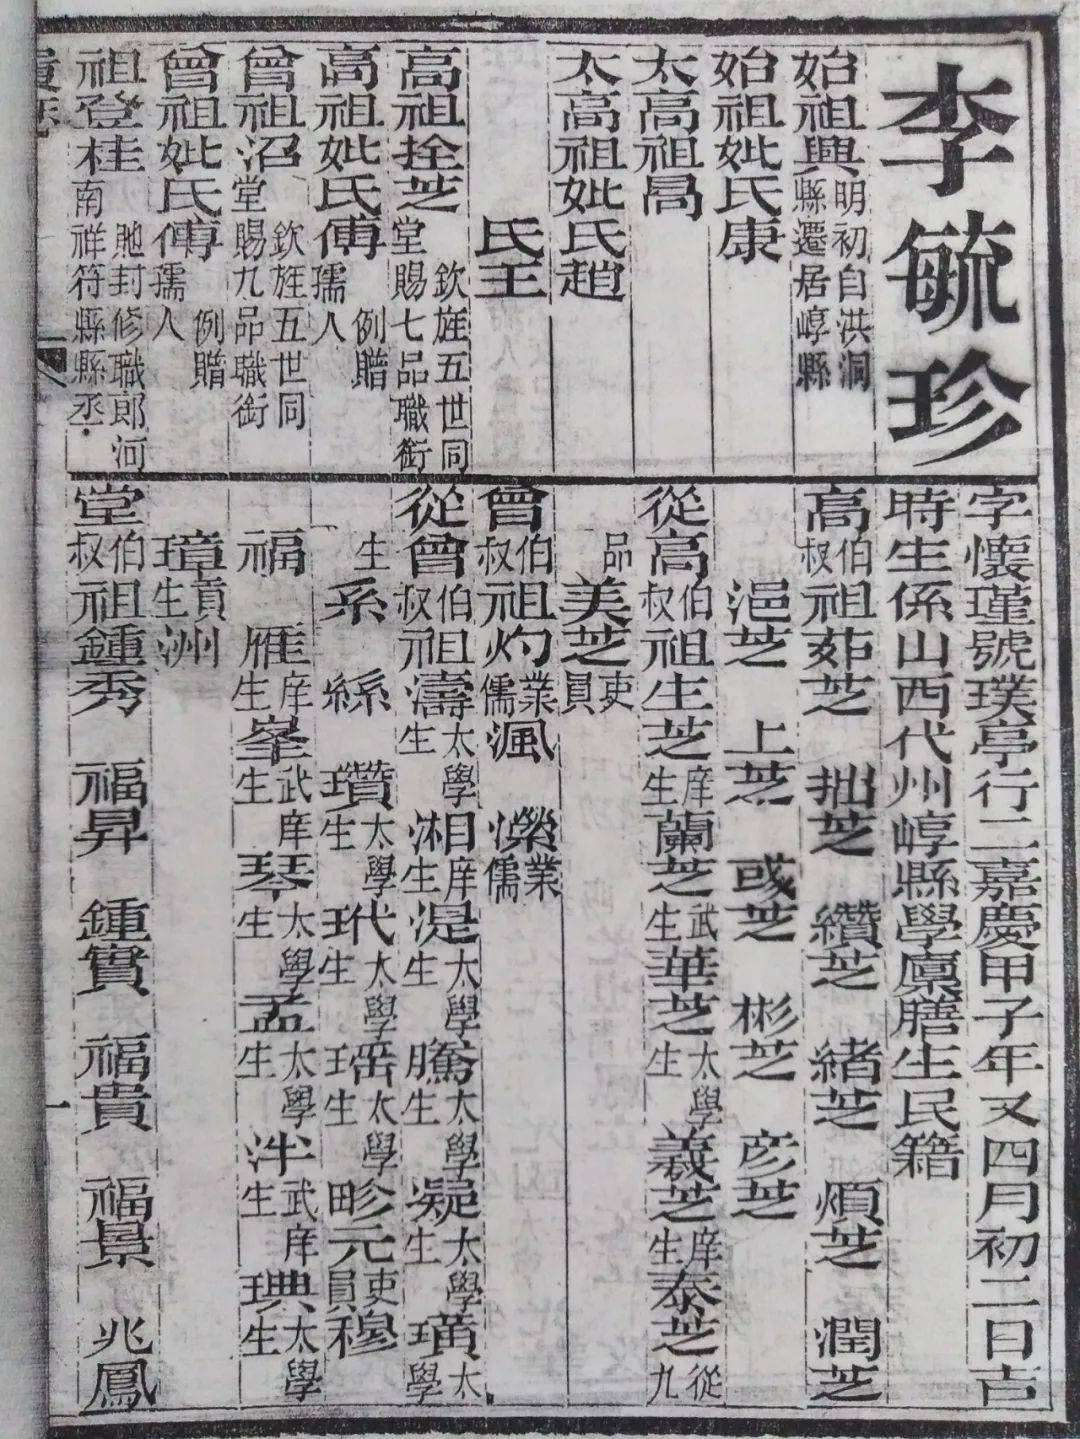 李毓珍
始祖興明初自洪洞縣遷居崞縣
始祖妣氏康
太高祖昺
太高祖妣氏趙
氏王
高祖拴芝欽旌五世同堂賜七品職銜
高祖妣氏傅例贈孺人
曾祖沼欽旌五世同堂賜九品職銜
曾祖妣氏傅例贈孺人
祖登桂貤封修職郎河南祥符縣縣丞
字懷瑾號璞亭行二嘉慶甲子年又四月初二日吉
時生係山西代州崞縣學廩膳生民籍
高伯叔祖茹芝 拙芝 纘芝 緒芝 煩芝 潤芝
浥芝 上芝 彧芝 彬芝 彦芝
從高伯叔祖生芝庠生蘭芝武庠生華芝太學生義芝庠生泰芝從九
品美芝吏員
曾伯叔祖灼業儒渢 濴業儒
從曾伯叔祖濤太學生湘庠生湜太學生騰太學生凝太學生璜太學
生系 絲 瓚太學生玳太學生琣太學生畛元吏員穆
福 雁庠生峯武庠生琴太學生孟太學生泮武庠生琠太學生
璋貢生洲
堂伯叔祖鍾秀 福昇 鍾實 福貴 福景 兆鳳